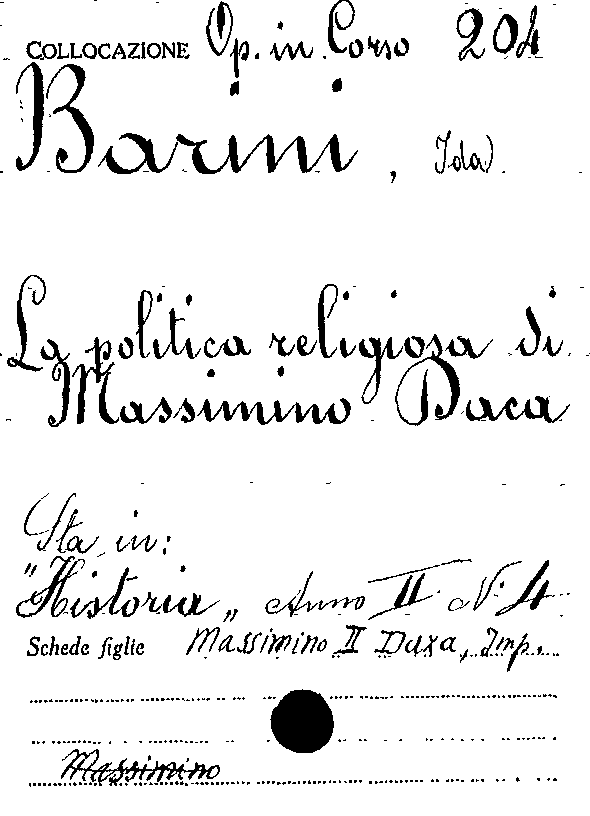 COLLOCAZIONE Op. in Corso 204
Barini, Ida)
La politica religiosa di
Massimino Daca
Sta in:
"Historia„ Anno II N. 4
Schede figlie Massimino II Daxa, Imp.
Massimino